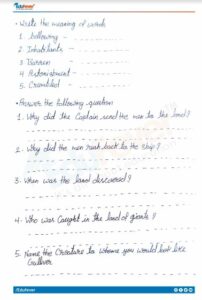 Write the meaning of words
1. Following -
2. Inhabitants -
3. Barren -
4. Astonishment -
5. Crumbled -
Answer the following question
1. Why did the Captain send the men to the land?
2. Why did the men rush back to the ship?
3. When was the land discovered?
4. Who was Caught in the land of giants?
5. Name the Creature to whome you would look like Gulliver